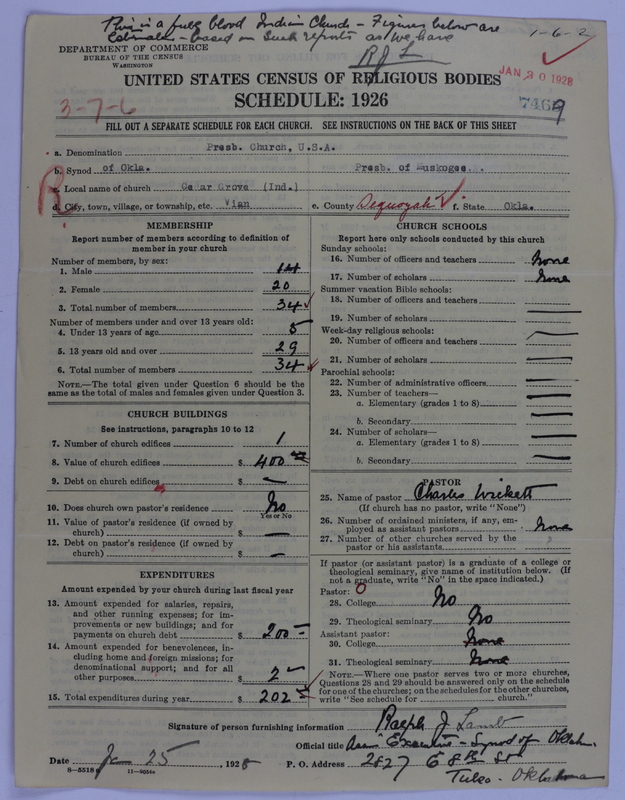 This is a full blood Indian Church - Figures below are
estimates - based on such reports as we have
RJL
1-6-2
DEPARTMENT OF COMMERCE
BUREAU OF THE CENSUS
WASHINGTON
JAN 30 1928
UNITED STATES CENSUS OF RELIGIOUS BODIES
3-7-6
SCHEDULE: 1926
7469
FILL OUT A SEPARATE SCHEDULE FOR EACH CHURCH. SEE INSTRUCTIONS ON THE BACK OF THIS SHEET
a. Denomination Presb. Church, U.S.A.
b. Synod of Okla. Presb. of Muskogee.
R
c. Local name of church Cedar Grove (Ind.)
d. City, town, village, or township, etc. Vian e. County Sequoyah f. State Okla.
MEMBERSHIP
Report number of members according to definition of
member in your church
Number of members, by sex:
1. Male 14
2. Female 20
3. Total number of members 34
Number of members under and over 13 years old:
4. Under 13 years of age 5
5. 13 years old and over 29
6. Total number of members 34
NOTE.—The total given under Question 6 should be the
same as the total of males and females given under Question 3.
CHURCH BUILDINGS
See instructions, paragraphs 10 to 12
7. Number of church edifices 1
8. Value of church edifices $ 400
9. Debt on church edifices $ —
10. Does church own pastor's residence? No
Yes or No
11. Value of pastor's residence (if owned by
church) $ —
12. Debt on pastor's residence (if owned by
church) $ —
EXPENDITURES
Amount expended by your church during last fiscal year
13. Amount expended for salaries, repairs,
and other running expenses; for im-
provements or new buildings; and for
payments on church debt $ 200 —
14. Amount expended for benevolences, in-
cluding home and foreign missions; for
denominational support; and for all
other purposes $ 2 —
15. Total expenditures during year $ 202
CHURCH SCHOOLS
Report here only schools conducted by this church
Sunday schools:
16. Number of officers and teachers None
17. Number of scholars None
Summer vacation Bible schools:
18. Number of officers and teachers —
19. Number of scholars —
Week-day religious schools:
20. Number of officers and teachers —
21. Number of scholars —
Parochial schools:
22. Number of administrative officers —
23. Number of teachers—
a. Elementary (grades 1 to 8) —
b. Secondary —
24. Number of scholars—
a. Elementary (grades 1 to 8) —
b. Secondary —
PASTOR
25. Name of pastor Charles Wickett
(If church has no pastor, write "None")
26. Number of ordained ministers, if any, em-
ployed as assistant pastors None
27. Number of other churches served by the
pastor or his assistants
If pastor (or assistant pastor) is a graduate of a college or
theological seminary, give name of institution below. (If
not a graduate, write "No" in the space indicated.)
Pastor: O
28. College No
29. Theological seminary No
Assistant pastor:
30. College None
31. Theological seminary None
NOTE.—Where one pastor serves two or more churches,
Questions 28 and 29 should be answered only on the schedule
for one of the churches; on the schedules for the other churches,
write "See schedule for church."
Signature of person furnishing information Ralph J Lamb
Official title Executive - Synod of Oklahoma
Date Jan 25, 1928 P. O. Address 2827 E 8th St
8—5518 11—9024a Tulsa - Oklahoma